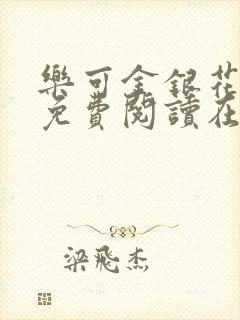 樂可金銀花
免費閱讀在
梁飛杰